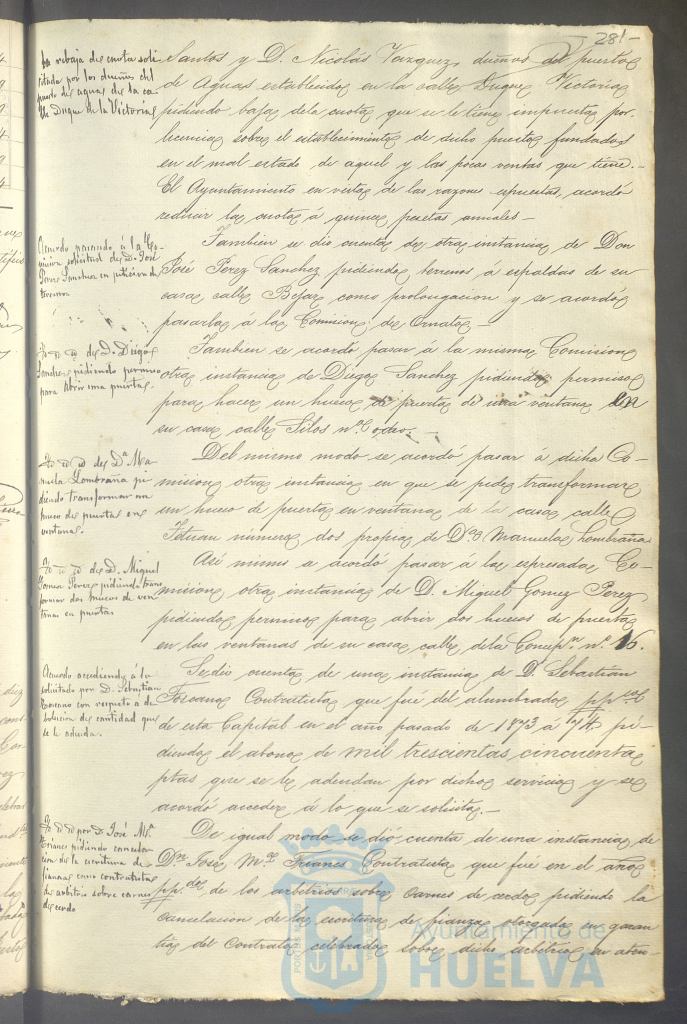 281-
la rebaja de cuota soli-
citada por los dueños del
puesto de aguas de la ca-
lle Duque de la Victoria
Santos y D. Nicolás Vazquez, dueños del puesto
de Aguas establecido en la calle Duque Victoria
pidiendo baja de la cuota que se le tiene impuesta por
licencia sobre el establecimiento de dicho puesto fundados
en el mal estado de aquel y las pocas ventas que tiene.-
El Ayuntamiento en vista de las razones espuestas, acordó
reducir la cuota á quince pesetas anuales-
Acuerdo pasando á la Co-
mision solicitud de D. José
Perez Sanchez en peticion de
terreno
Tambien se dio cuenta de otra instancia de Don
José Perez Sanchez pidiendo terreno á espaldas de su
casa calle Bejar como prolongacion y se acordó
pasarla á la Comision de Ornato-
Yd id id de D. Diego
Sanchez pidiendo permiso
para abrir una puerta.
Tambien se acordó pasar á la misma Comision
otra instancia de Diego Sanchez pidiendo permiso
para hacer un hueco de puerta de una ventana en
su casa calle Silos nº ocho.-
Yd id id de Dª Ma-
nuela Lombraña pi-
diendo transformar un
hueco de puerta en
ventana.
Del mismo modo se acordó pasar á dicha Co-
mision otra instancia en que se pide transformar
un hueco de puerta en ventana de la casa calle
Tetuan número dos propia de Dª Manuela Lombraña
Yd id id de D. Miguel
Gomez Perez pidiendo trans-
formar dos huecos de ven-
tanas en puertas
Asi mismo se acordó pasar á la espresada Co-
mision otra instancia de D. Miguel Gomez Perez
pidiendo permiso para abrir dos huecos de puerta
en las ventanas de su casa calle de la Concepn. nº 16.
Acuerdo accediendo á lo
solicitado por D. Sebastian
Toscano con respecto á de-
volucion de cantidad que
se le adeuda.
Se dio cuenta de una instancia de D. Sebastian
Toscano Contratista que fué del alumbrado pp
de esta Capital en el año pasado de 1873 á 74 pi-
diendo el abono de mil trescientas cincuenta
ptas que se le adeudan por dicho servicio y se
acordó acceder á lo que se solicita.-
Yd id id por D. José Mª
pidiendo cancela-
cion de la escritura de
fianza como contratista
de arbitrio sobre carnes
de cerdo
De igual modo se dió cuenta de una instancia de
Dn José Mª Contratista que fué en el año
pp. de los arbitrios sobre carnes de cerdo pidiendo la
cancelacion de la escritura de fianza otorgada en garan-
tia del Contrato celebrado sobre dicho arbitrio en aten-
Ayuntamiento de
HUELVA